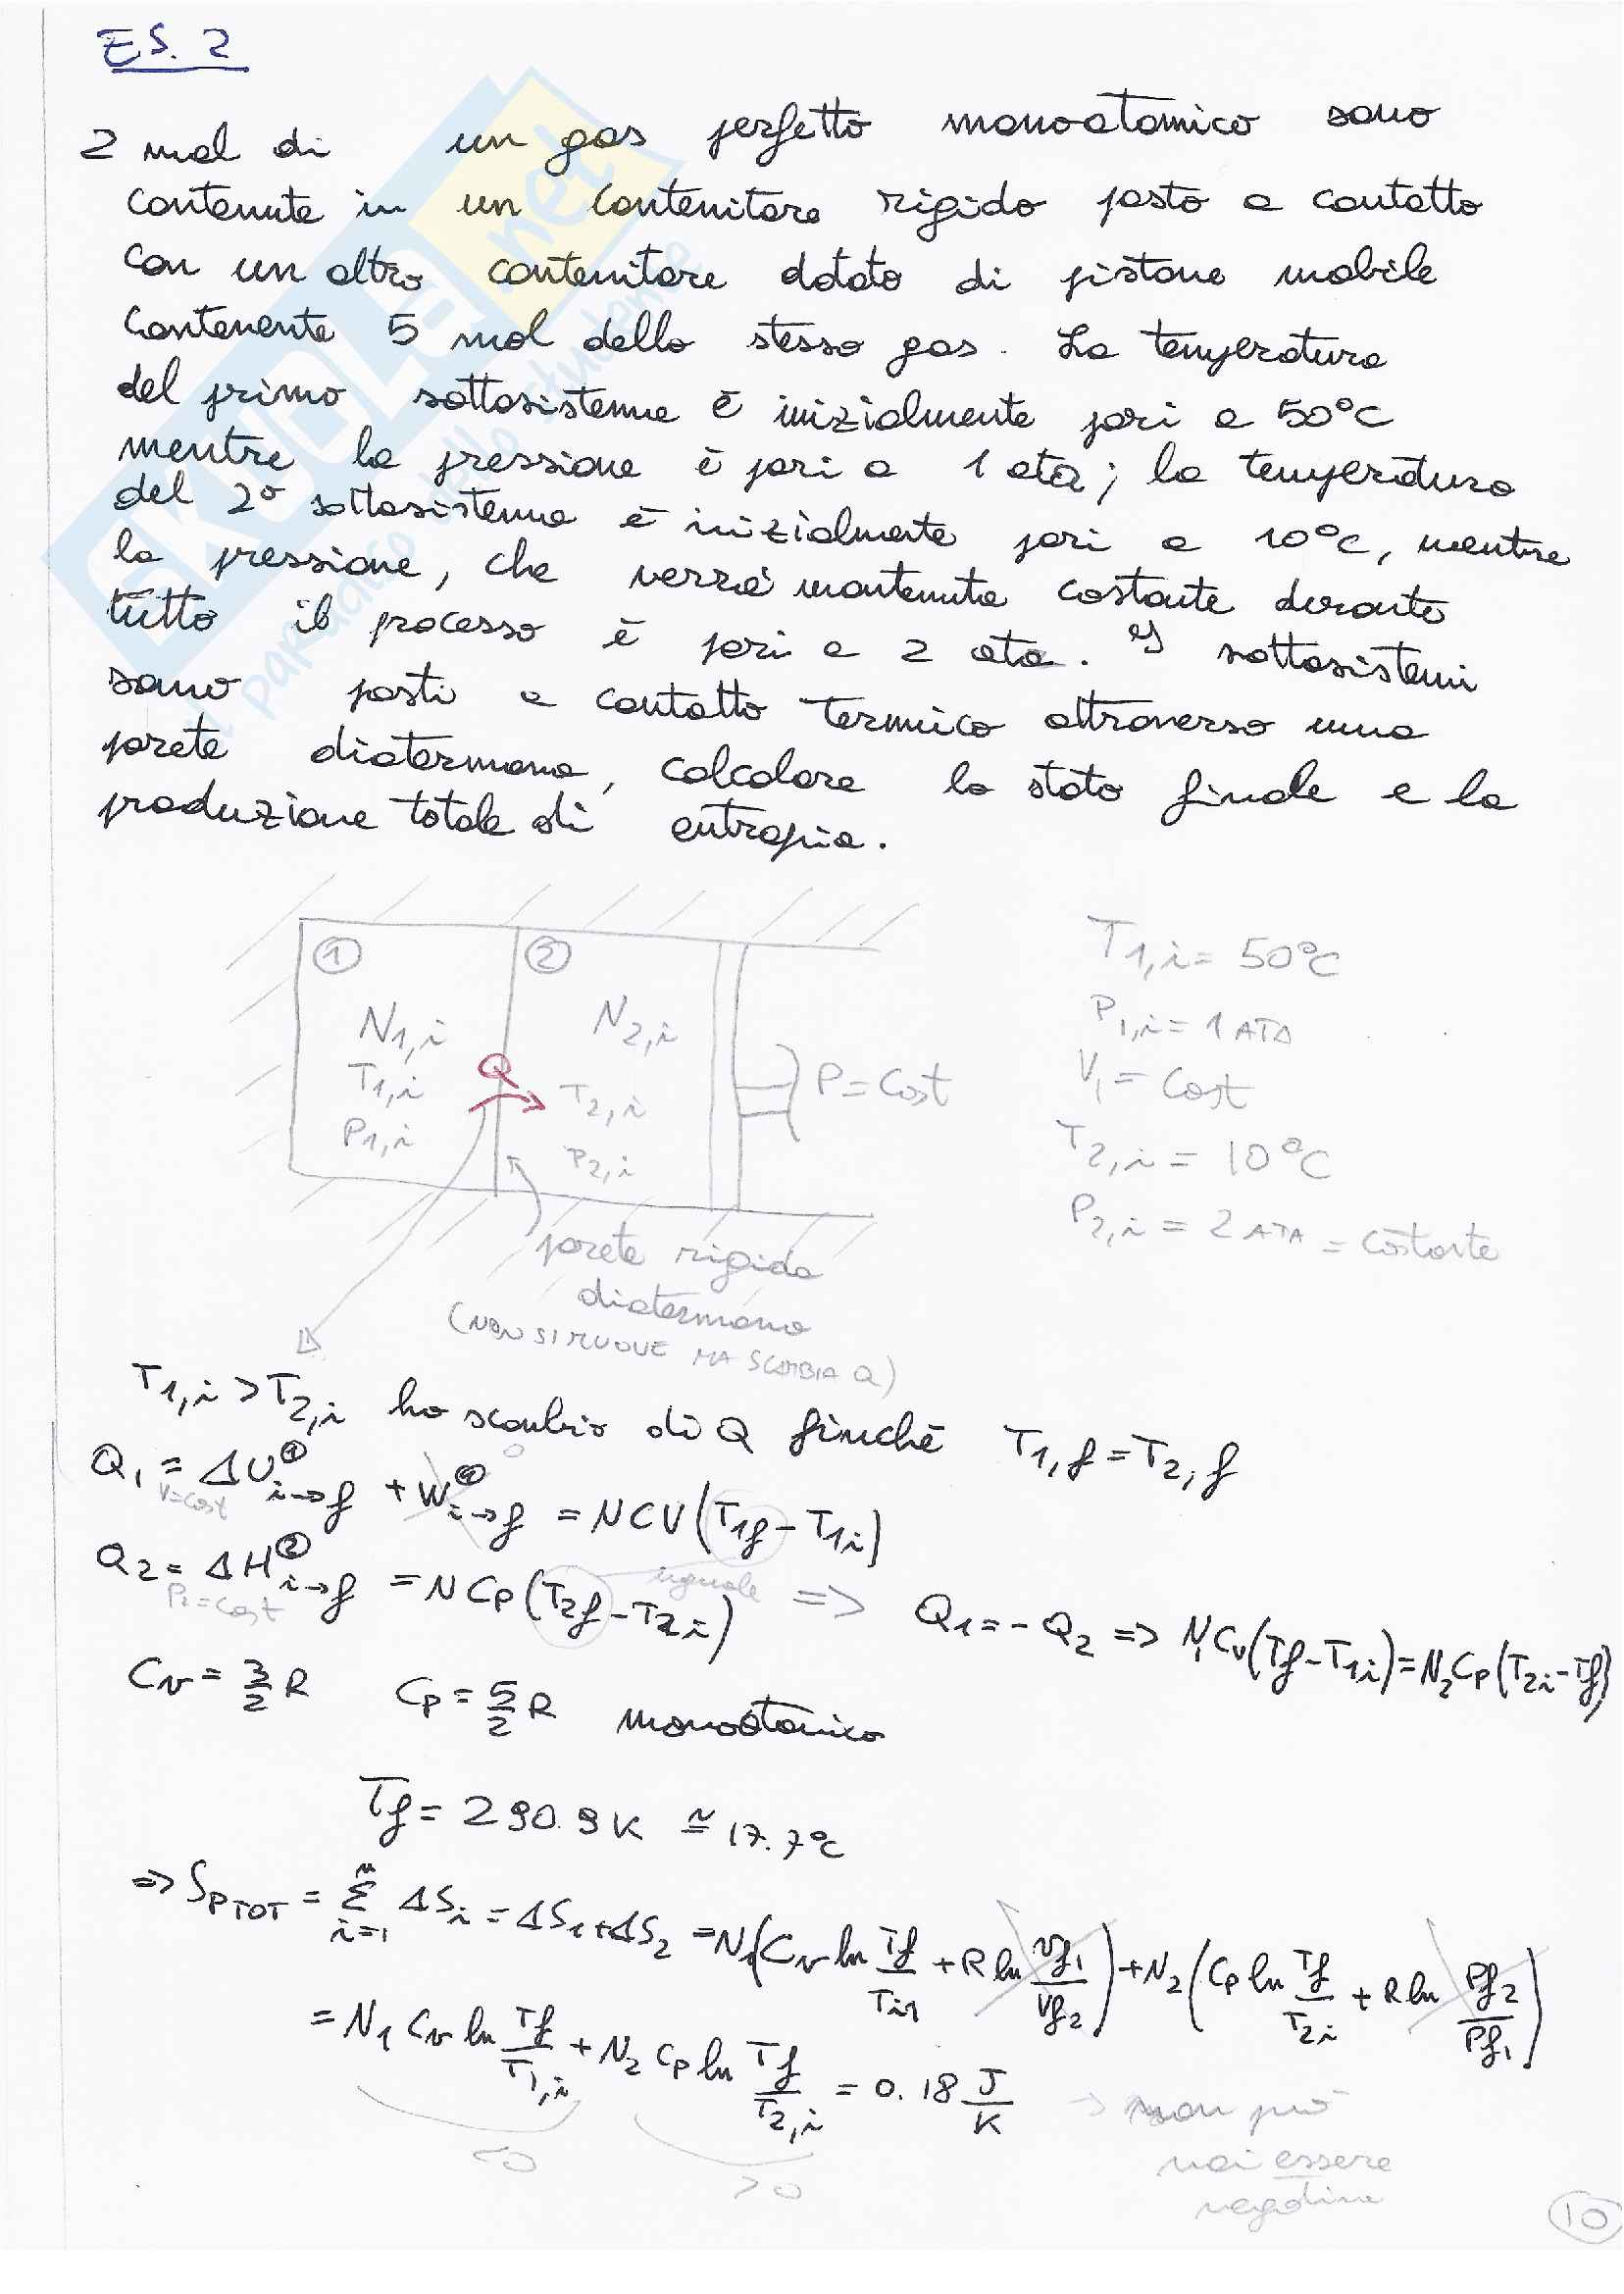 ES. 2
2 mol di un gas perfetto monoatomico sono
contenute in un contenitore rigido posto a contatto
con un altro contenitore dotato di pistone mobile
contenente 5 mol dello stesso gas. La temperatura
del primo sottosistema è inizialmente pari a 50°C
mentre la pressione è pari a 1 ata; la temperatura
del 2° sottosistema è inizialmente pari a 10°C, mentre
la pressione, che verrà mantenuta costante durante
tutto il processo è pari a 2 ata. I sottosistemi
sono posti a contatto termico attraverso una
parete diatermana, calcolare lo stato finale e la
produzione totale di entropia.
① ②
N1,i N2,i
T1,i Q T2,i
P1,i P2,i
P = Cost
T1,i = 50°C
P1,i = 1 ATA
V1 = Cost
T2,i = 10°C
P2,i = 2 ATA = Costante
parete rigida
diatermana
(NON SI MUOVE MA SCAMBIA Q)
T1,i > T2,i ho scambio di Q finché T1,f = T2,f
Q1 = ΔU① i→f + W① i→f = N CV (T1f - T1i)
V=cost 0
Q2 = ΔH② i→f = N CP (T2f - T2i) => Q1 = - Q2 => N1 Cv (Tf - T1i) = N2 CP (T2i - Tf)
P2=cost uguale
Cv = 3/2 R CP = 5/2 R monoatomico
Tf = 290.9 K ≅ 17.7°C
=> SPTOT = Σ i=1 n ΔSi = ΔS1 + ΔS2 = N1 (Cv ln Tf/Ti1 + R ln Vf1/Vf2) + N2 (CP ln Tf/T2i + R ln Pf2/Pf1)
= N1 Cv ln Tf/T1,i + N2 CP ln Tf/T2,i = 0.18 J/K → non può
<0 >0
mai essere
negativa
10
SKUOLA.net
il paradiso dello studente